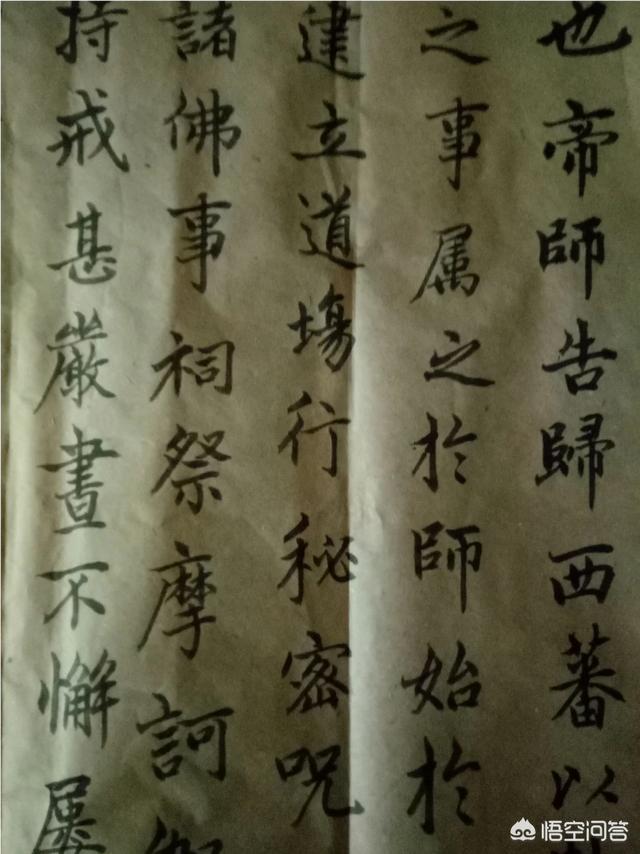 也帝師告歸西蕃以
之事属之於師始於
建立道場行秘密呪
諸佛事祠祭摩訶伽
持戒甚嚴晝不懈屡
悟空问答